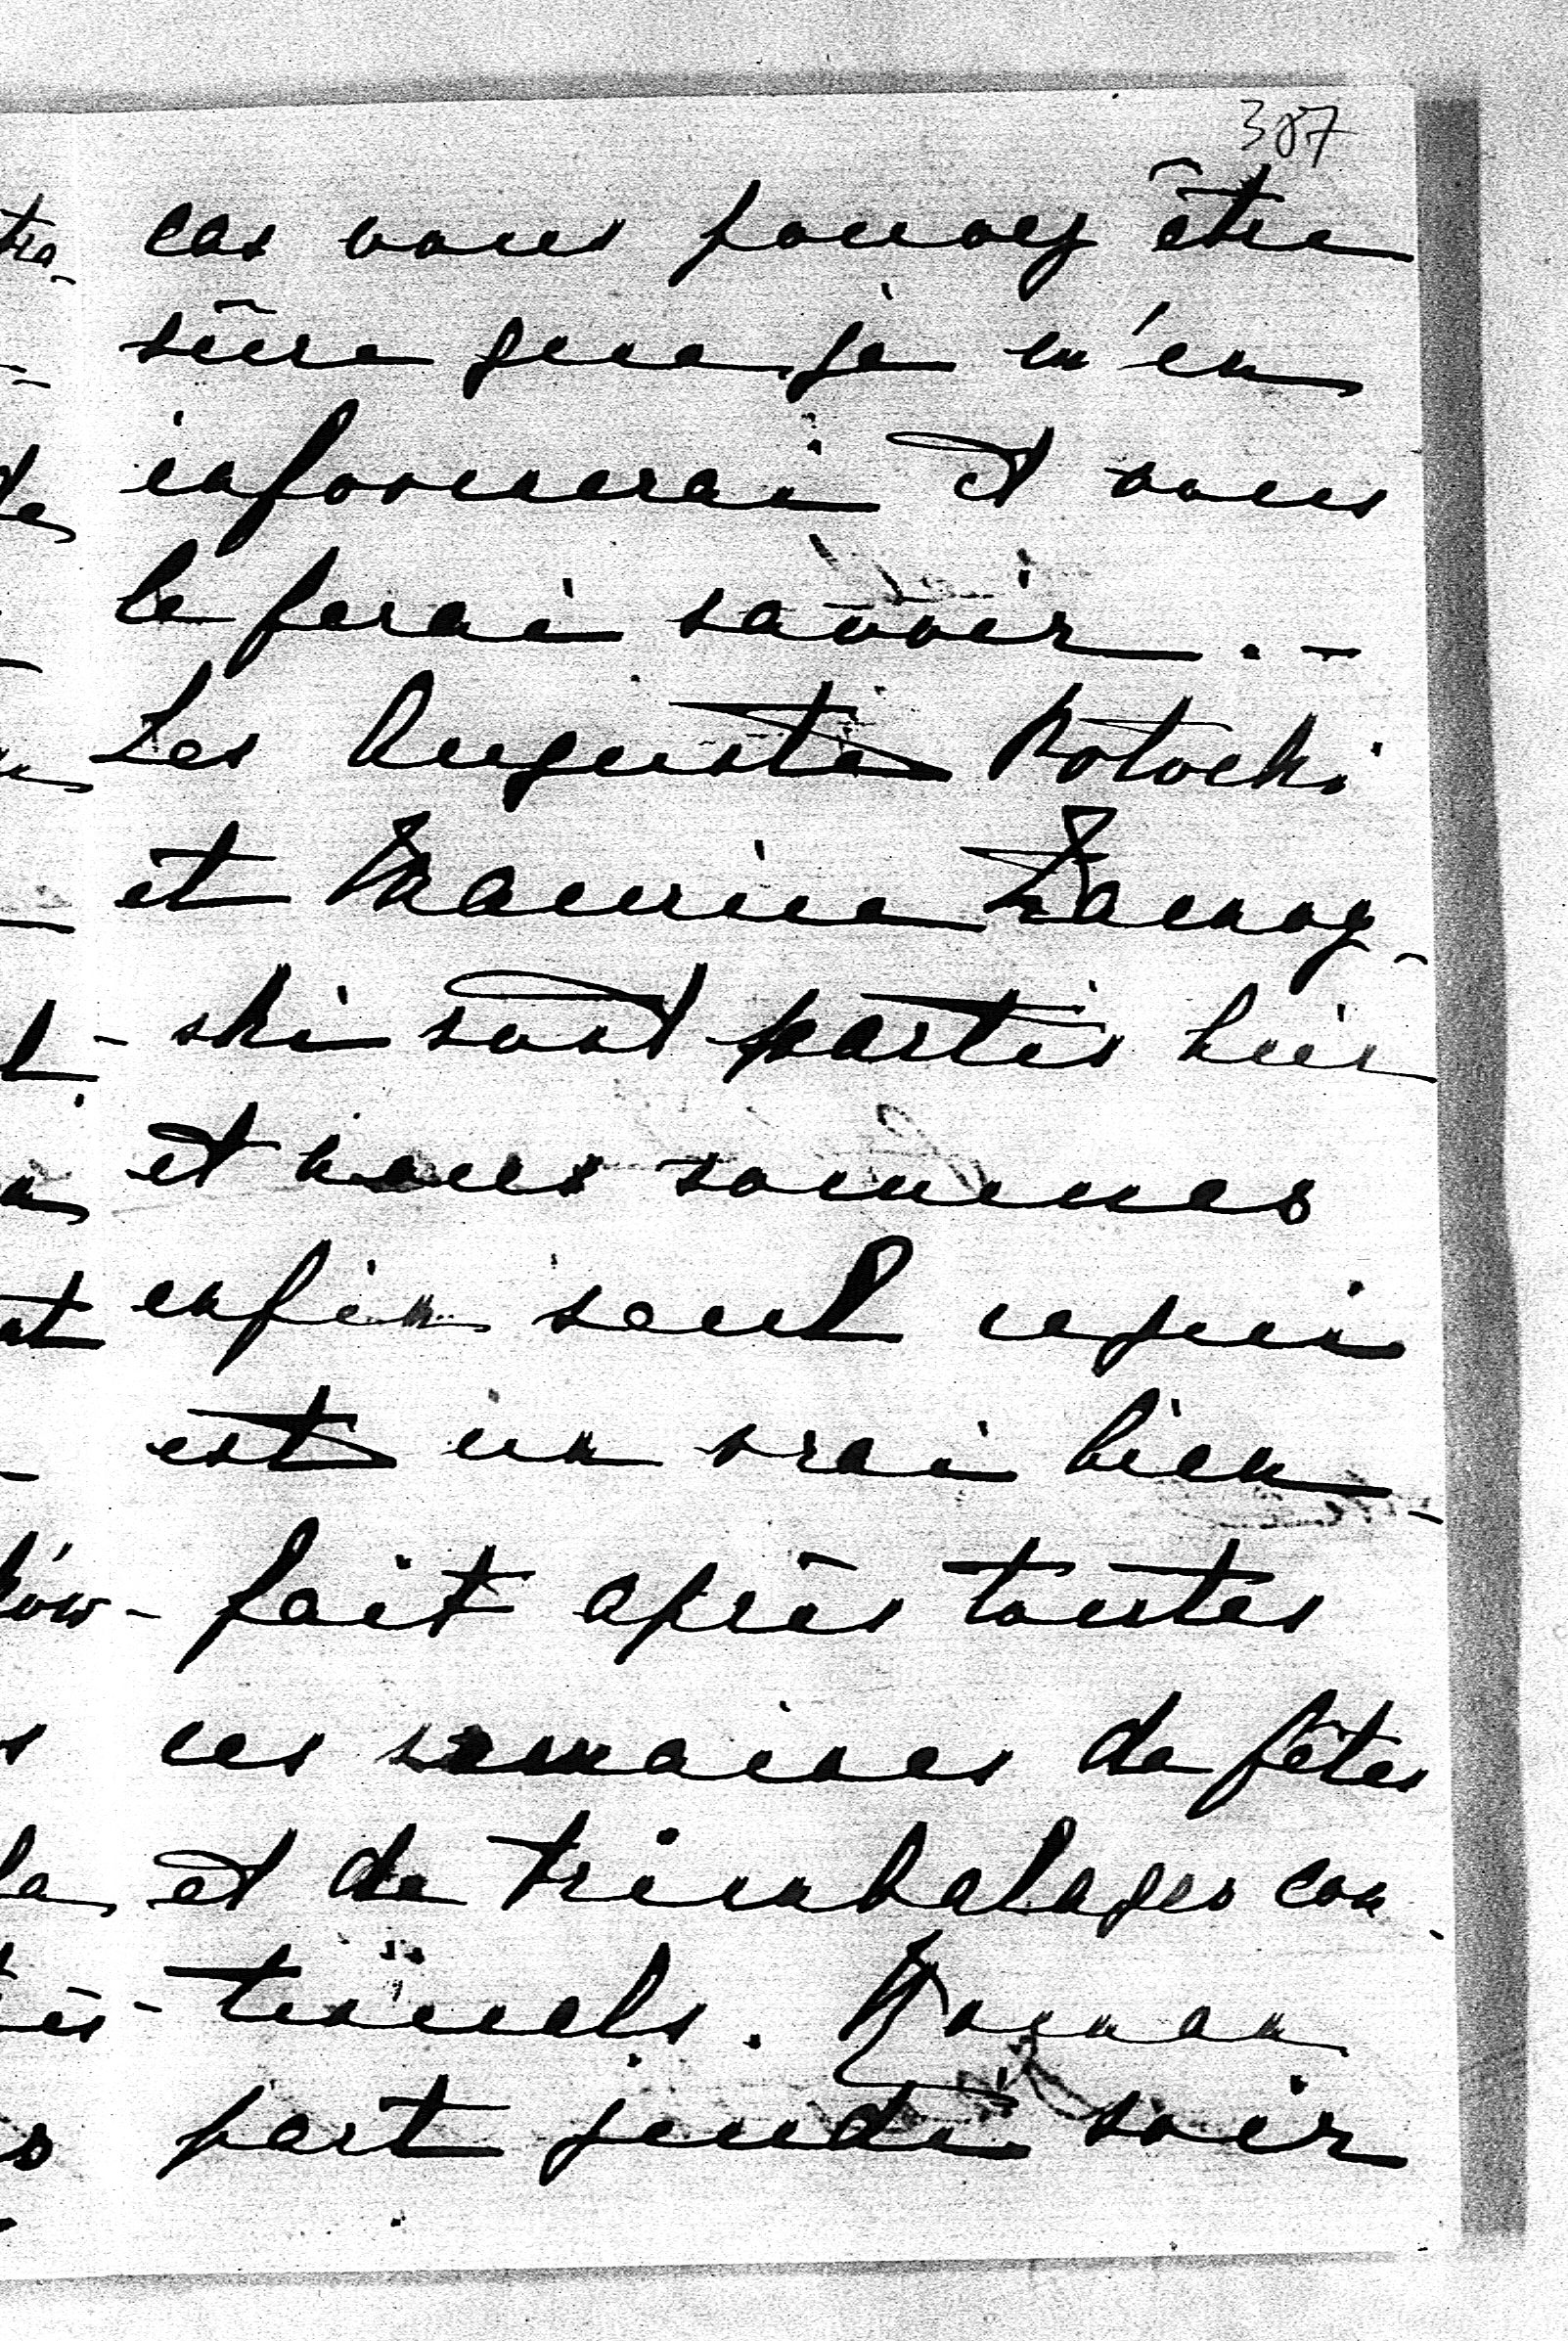 387
cas vous pouvez être
sûre que je m'en
informerai et vous
le ferai savoir. -
Les Auguste Potocki
et Maurice Zamoy-
ski sont partis hier
et nous sommes
enfin seul ce qui
est un vrai bien-
- fait après toutes
ces semaines de fêtes
et de trimbalages con-
- tinuels. Roman
part jeudi soir